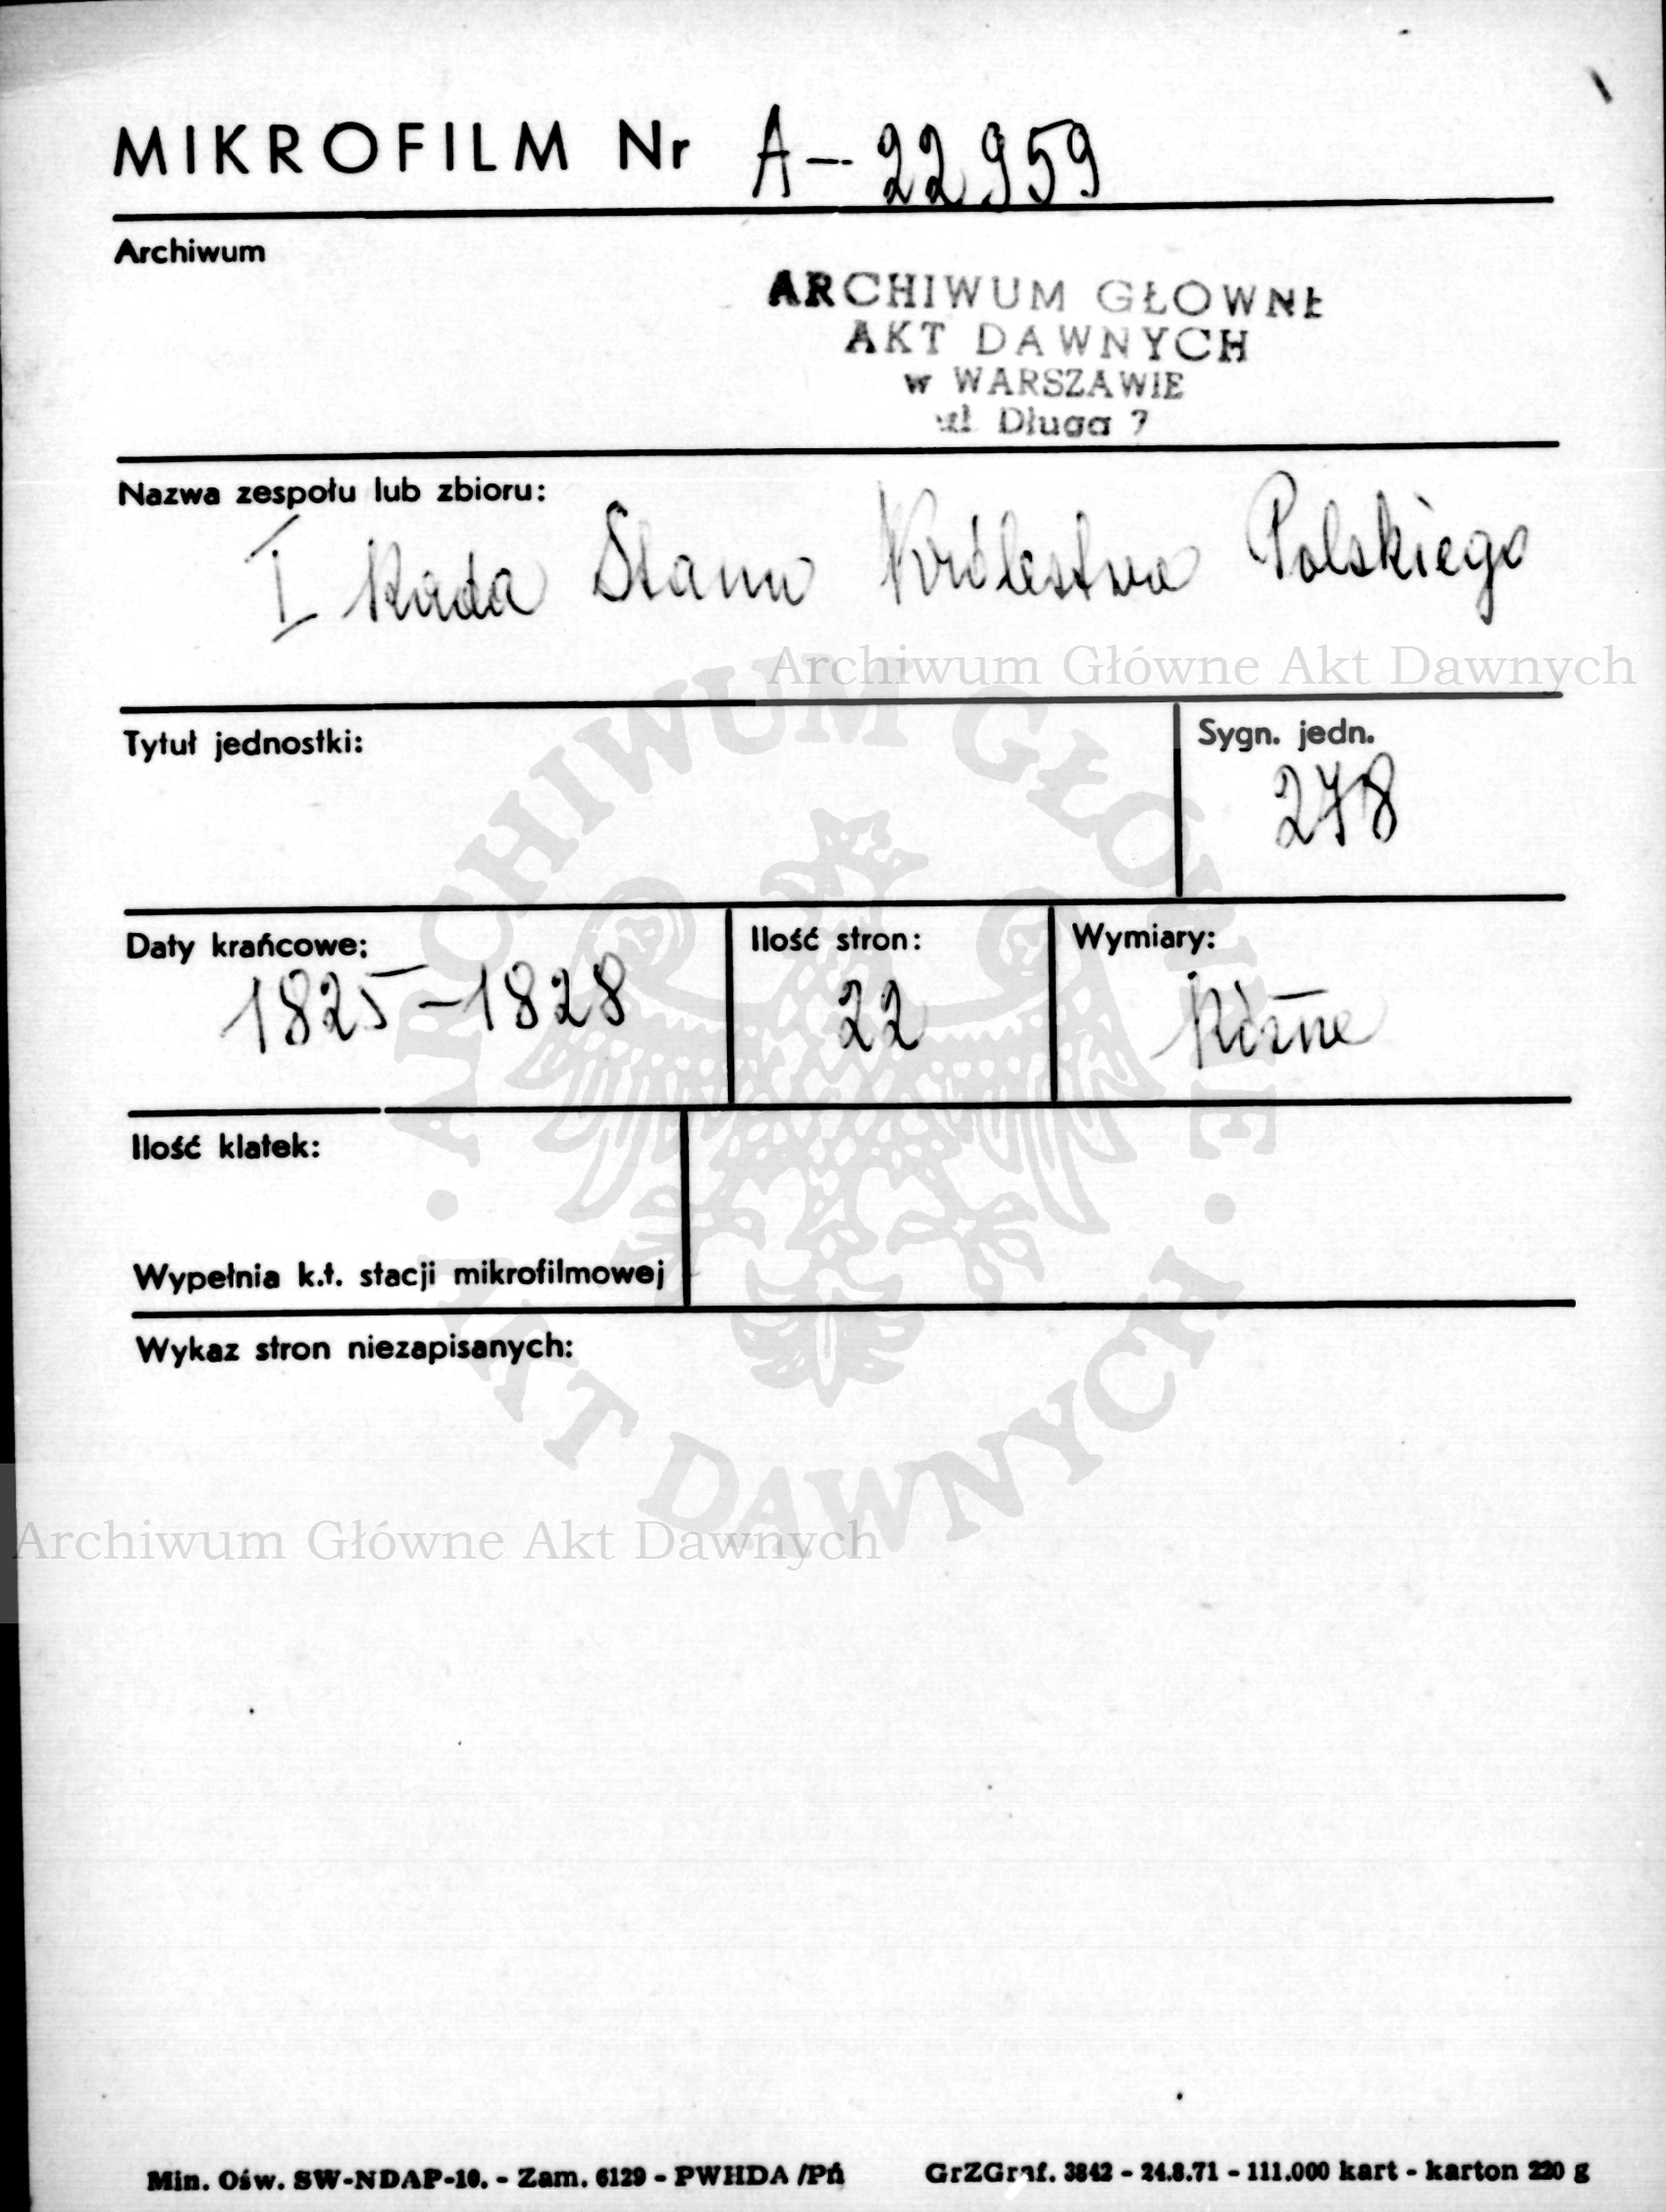 MIKROFILM Nr A-22959
Archiwum
ARCHIWUM GŁOWNE
AKT DAWNYCH
w WARSZAWIE
ul. Długa 7
Nazwa zespołu lub zbioru:
I Rada Stanu Królestwa Polskiego
Archiwum Główne Akt Dawnych
Tytuł jednostki:
Sygn. jedn.
278
Daty krańcowe:
1825-1828
Ilość stron:
22
Wymiary:
Różne
Ilość klatek:
Wypełnia k.t. stacji mikrofilmowej
Wykaz stron niezapisanych:
ARCHIWUM GŁÓWNE
· AKT DAWNYCH ·
Archiwum Główne Akt Dawnych
Min. Ośw. SW-NDAP-10. - Zam. 6129 - PWHDA /Pń GrZGraf. 3842 - 24.8.71 - 111.000 kart - karton 220 g